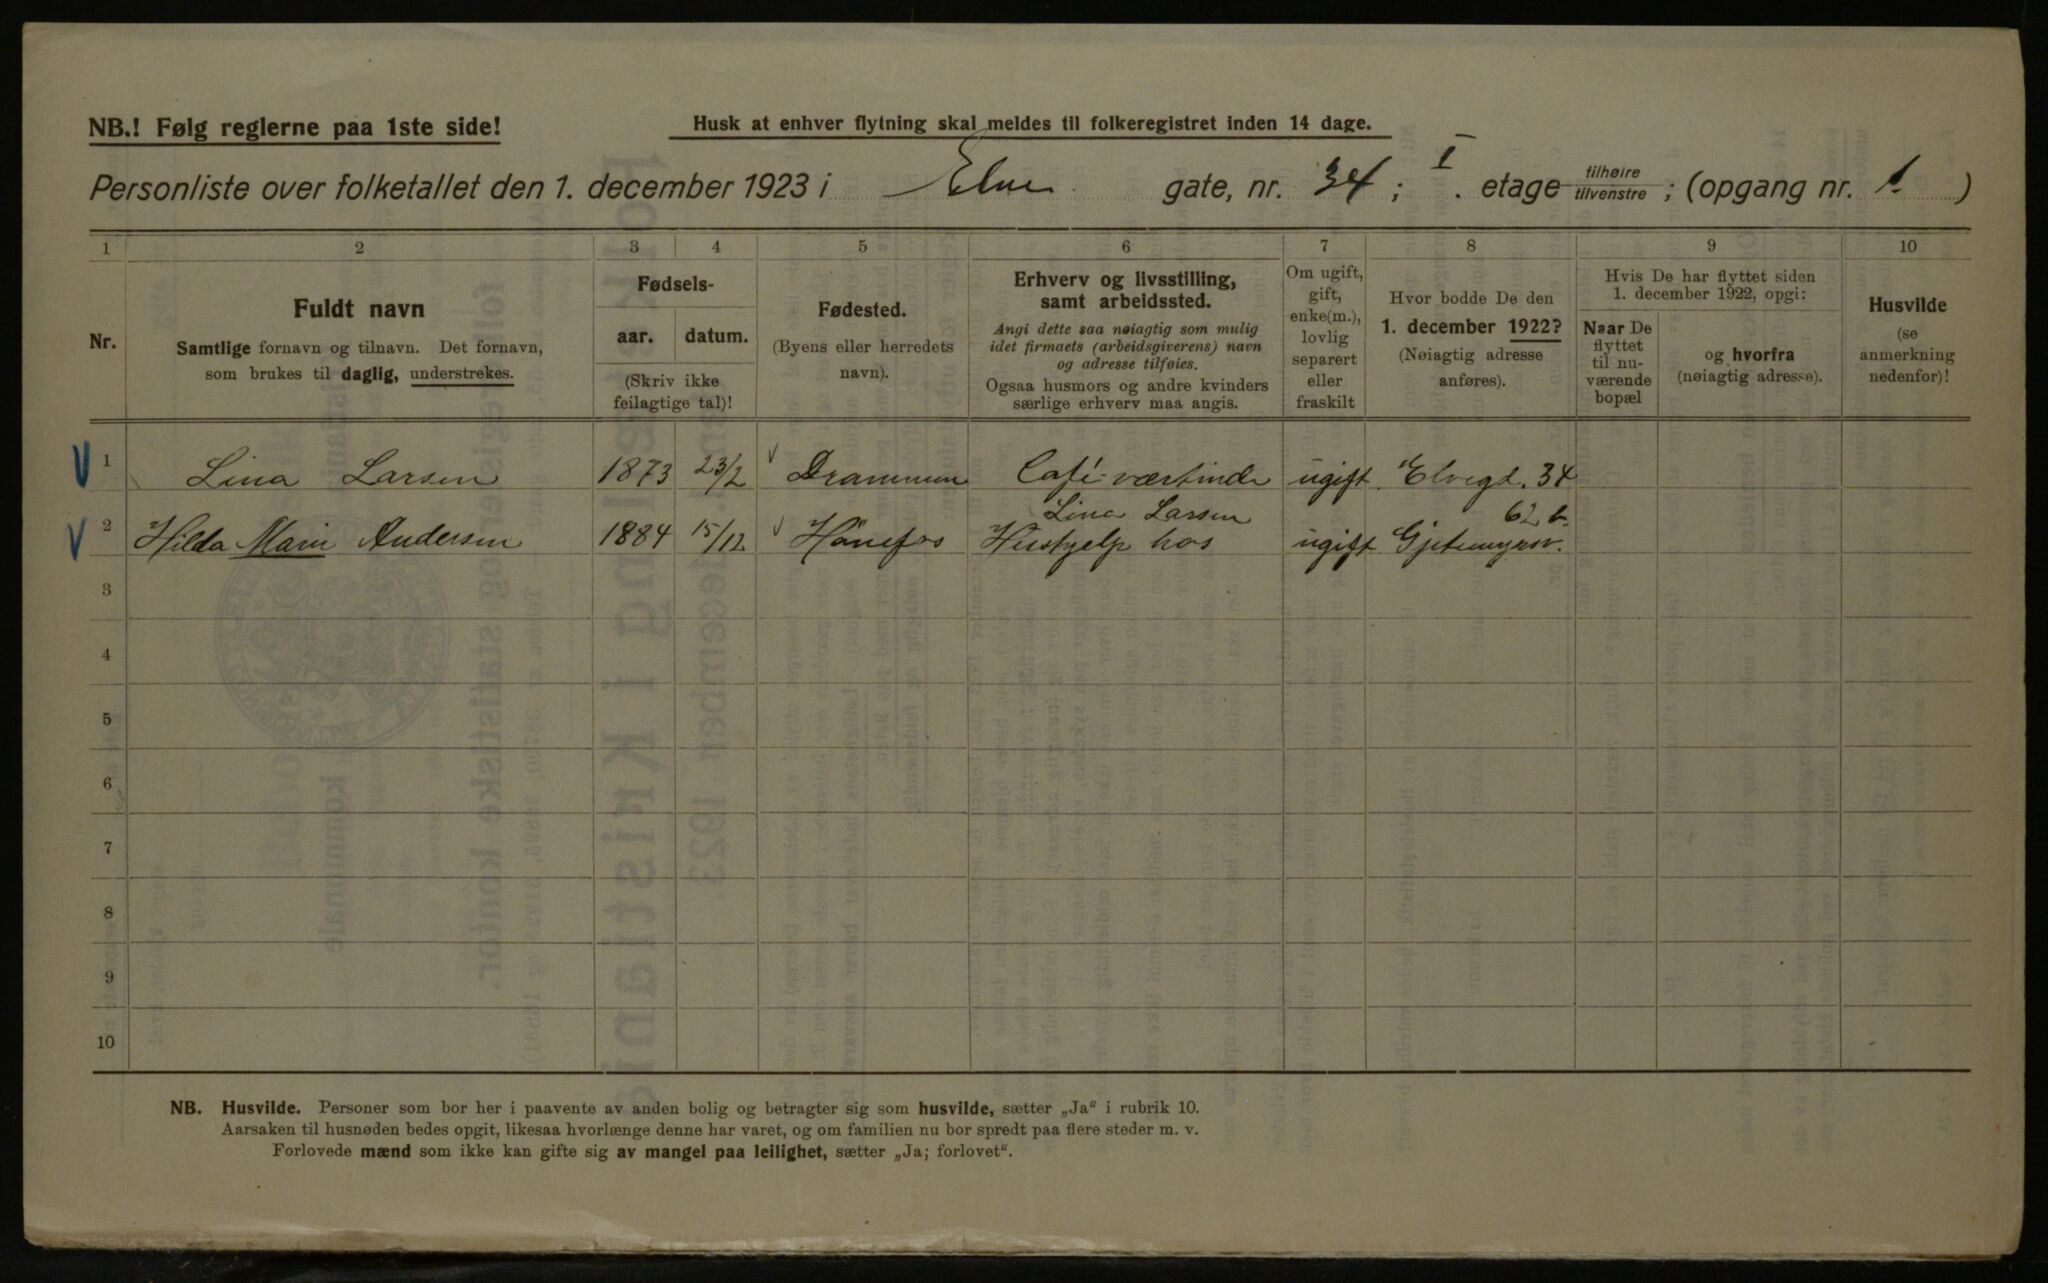 NB.! Følg reglerne paa 1ste side!
Husk at enhver flytning skal meldes til folkeregistret inden 14 dage.
Personliste over folketallet den 1. december 1923 i Elve gate, nr. 34; I. etage tilhøire/tilvenstre; (opgang nr. 1)
1 2 3 4 5 6 7 8 9 10
Nr.
Fuldt navn
Samtlige fornavn og tilnavn. Det fornavn,
som brukes til daglig, understrekes.
Fødsels-
aar. datum.
(Skriv ikke
feilagtige tal)!
Fødested.
(Byens eller herredets
navn).
Erhverv og livsstilling,
samt arbeidssted.
Angi dette saa nøiagtig som mulig
idet firmaets (arbeidsgiverens) navn
og adresse tilføies.
Ogsaa husmors og andre kvinders
særlige erhverv maa angis.
Om ugift,
gift,
enke(m.),
lovlig
separert
eller
fraskilt
Hvor bodde De den
1. december 1922?
(Nøiagtig adresse
anføres).
Hvis De har flyttet siden
1. december 1922, opgi:
Naar De
flyttet
til nu-
værende
bopæl
og hvorfra
(nøiagtig adresse).
Husvilde
(se
anmerkning
nedenfor)!
1 Lina Larsen 1873 23/2 Drammen Café-værtinde ugift Elvegd. 34
Lina Larsen 62 b.
2 Hilda Marie Andersen 1884 15/12 Hönefos Hushjelp hos ugift Gjetemyrsv.
3
4
5
6
7
8
9
10
NB. Husvilde. Personer som bor her i paavente av anden bolig og betragter sig som husvilde, sætter „Ja“ i rubrik 10.
Aarsaken til husnøden bedes opgit, likesaa hvorlænge denne har varet, og om familien nu bor spredt paa flere steder m. v.
Forlovede mænd som ikke kan gifte sig av mangel paa leilighet, sætter „Ja; forlovet“.